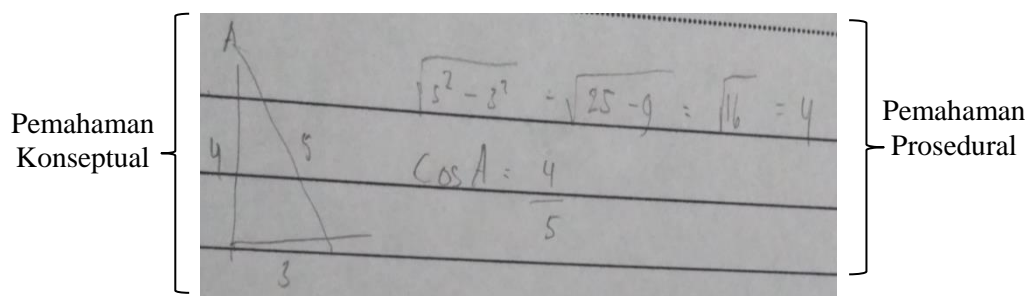 Pemahaman
Konseptual
A
4
5
3
√5² - 3² = √25 - 9 = √16 = 4
Cos A = 4
5
Pemahaman
Prosedural